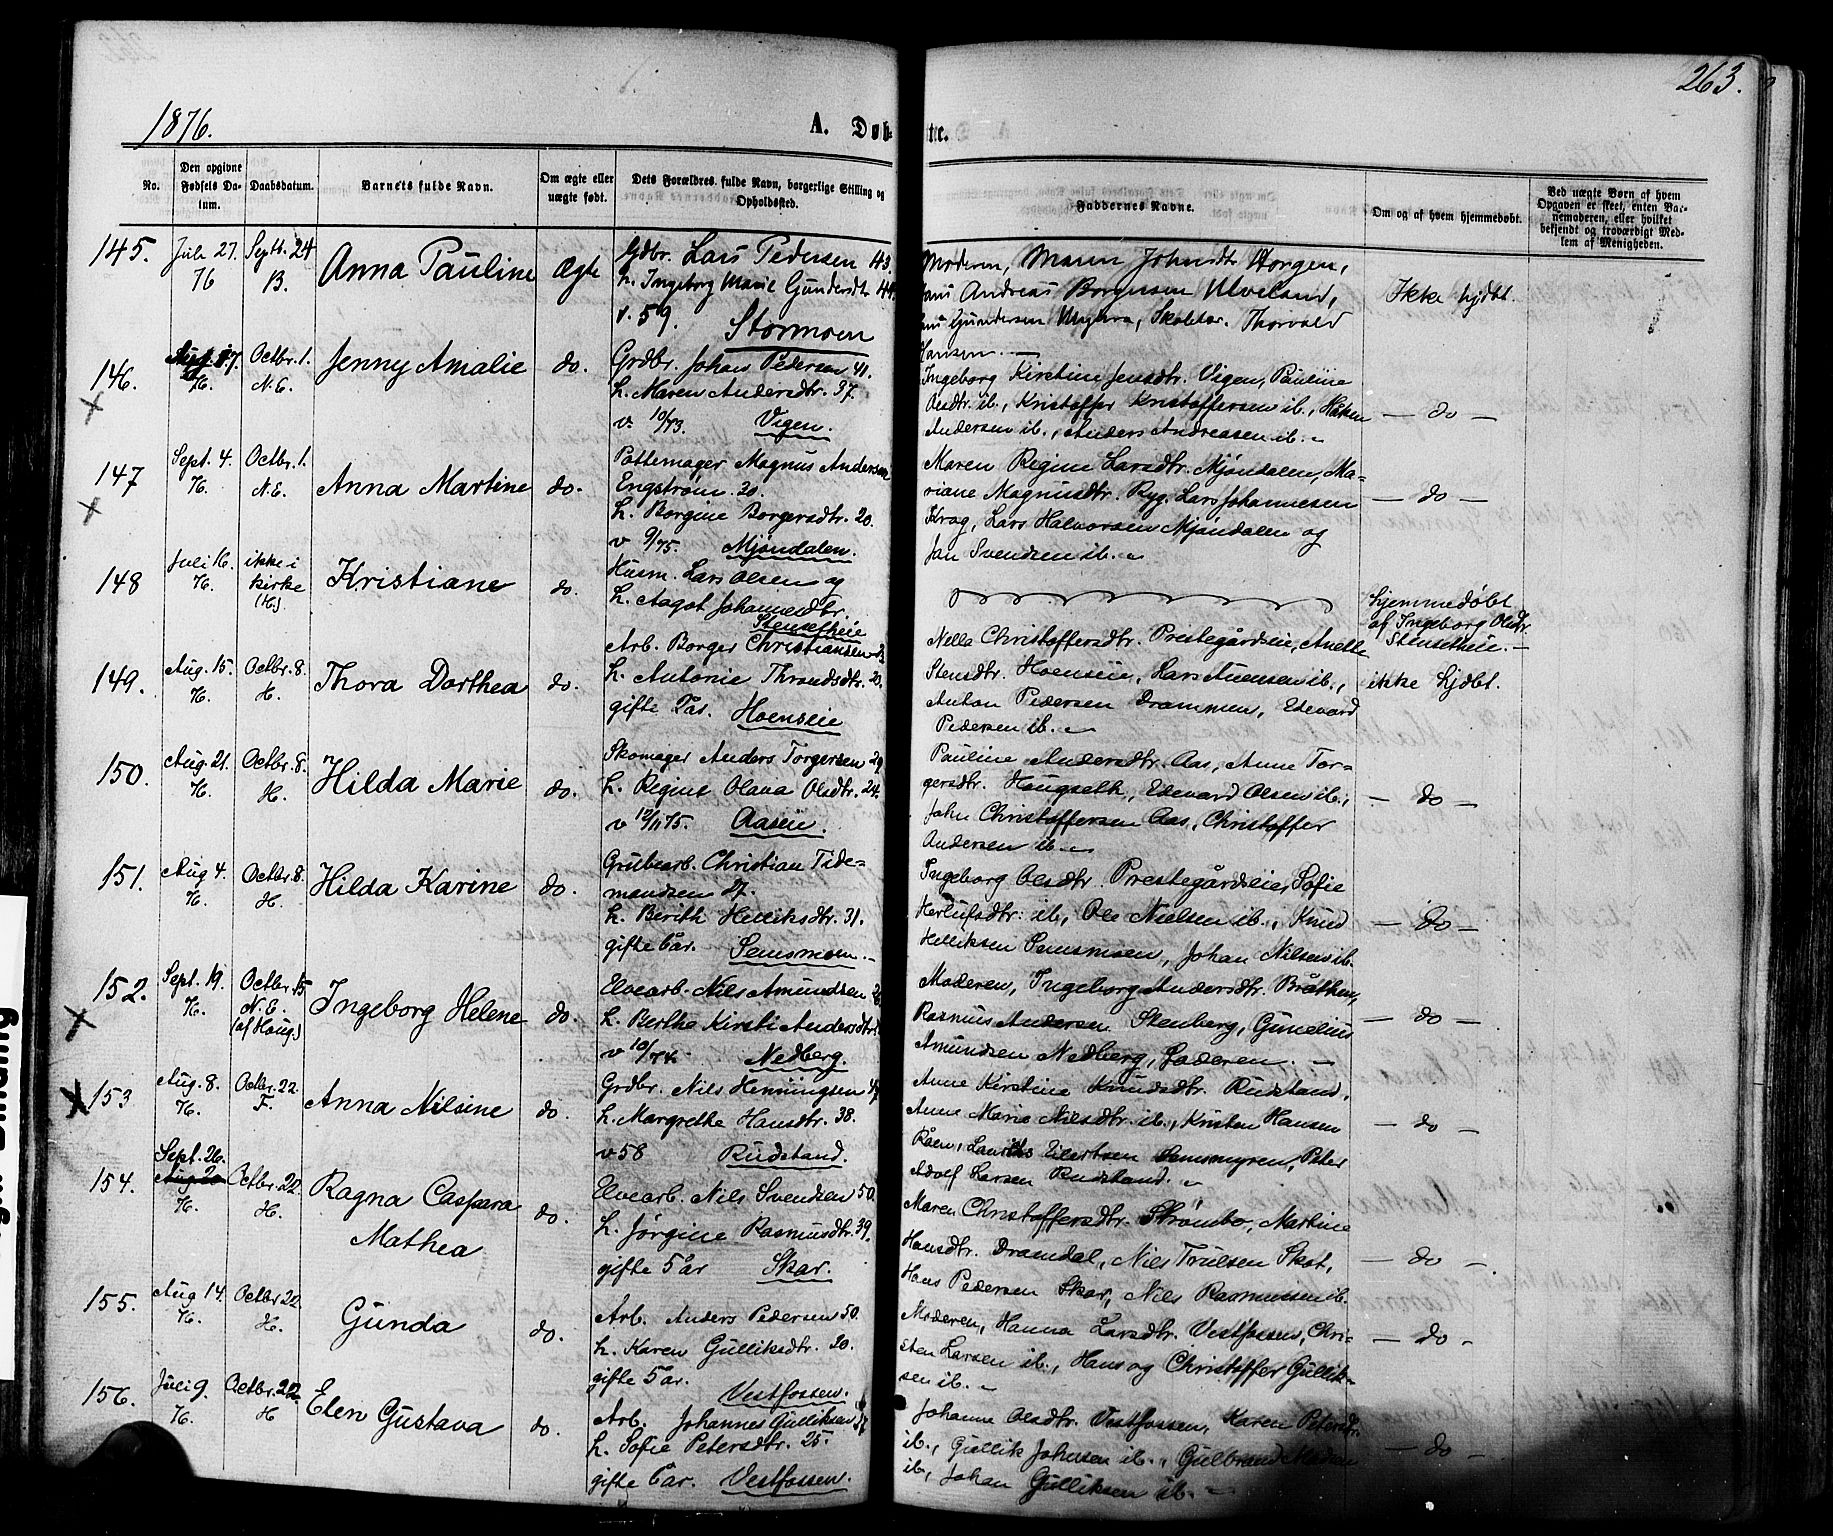 263.
1876.
A. Døb- te.
No.
Den opgivne Fødsels Datum.
Daabsdatum.
Barnets fulde Navn.
Om ægte eller uægte født.
Dets Forældres fulde Navn, borgerlige Stilling og Opholdssted.
Faddernes Navne.
Om og af hvem hjemmedøbt.
Ved uægte Børn af hvem Opgaven er skeet, enten Barnemoderen, eller hvilket bekjendt og troværdigt Medlem af Menigheden.
145. Juli 27. Septb. 24 Anna Pauline Ægte Gdbr. Lars Pedersen 43. Moderen, Maren Johnsdtr Horgen,
H B. h. Ingeborg Marie Gundersdtr 44 Andreas Borgersen Ulveland, Ikke hjdbt.
v. 59. Stormoen Gundersen Skolelær. Thorvald
Hansen. —
146. 17. Octbr. 1. Jenny Amalie do. Grdbr. Johan Pedersen 41. Ingeborg Kirstine Jensdtr. Vigen, Pauline
H. N.E. h. Maren Andersdtr. 37. Olsdtr. ib., Kristoffer Kristoffersen ib., Håken — do —
v. 10/73. Vigen. Andersen ib., Anders Andreasen ib. –
147 Sept. 4. Octbr. 1. Anna Martine do. Pottemager Magnus Andersen Maren Regine Larsdtr. Mjøndalen, Ma-
H. N.E. Engstrøm 30. riane Magnusdtr. Ryg, Lars Johannesen — do —
h. Borgine Borgersdtr. 20. Krog, Lars Halvorsen Mjøndalen og
v 9/75. Mjøndalen. Jan Svendsen ib. –
148 Juli 16. ikke i kirke (H.) Kristiane do. Husm. Lars Olsen og Hjemmedøbt
H. h. Aagot Johannesdtr. af Ingeborg Olsdtr.
Stensetheie Stensetheie. —
149. Aug. 15. Octbr. 8. Thora Dorthea do. Arb. Borger Christiansen Nella Christoffersdtr. Prestegårdseie, Anette
H. H. h. Antonie Throndsdtr. 20. Stensdtr. Hoenseie, Lars Svensen ib., ikke hjdbt.
gifte 2 år. Hoenseie Anton Pedersen Drammen, Edevard
Pedersen ib. –
150. Aug. 21. Octbr. 8. Hilda Marie do. Skomager Anders Torgersen 29. Pauline Andersdtr. Aas, Anne Tor-
H. H. h. Regine Olava Olsdtr. 24. gersdtr. Hougseth, Edevard Olsen ib., — do —
v 12/11 75. Aaseie. John Christoffersen Aas, Christoffer
Andersen ib. –
151. Aug 4. Octbr. 8. Hilda Karine do. Grubearb. Christian Tide- Ingeborg Olsdtr. Prestegårdseie, Sofie
H. H. mandsen 27. Herlufsdtr. ib., Ole Nielsen ib., Knud — do —
h. Berith Helliksdtr. 31. Helliksen Semsmoen, Johan Nilsen ib.
gifte 6 år. Semsmoen. –
152. Sept. 19. Octbr. 15 Ingeborg Helene do. Elvearb. Nils Amundsen Moderen, Ingeborg Andersdtr. Bråthen,
H. N.E. (af Haug) h. Berthe Kirsti Andersdtr. Rasmus Andersen Stenberg, Gunelius — do —
v 10/74. Nedberg. Amundsen Nedberg, Faderen. —
153 Aug. 8. Octbr. 22. Anna Nilsine do. Grdbr. Nils Henningsen Anne Kirstine Knudsdtr. Rudstand,
H. F. h. Margrethe Hansdtr. 38. Anne Marie Nilsdtr. ib., Kristen Hansen — do —
v 58 Rudstand. Råen, Laurits Eilertsen Semsmyren, Peter
Adolf Larsen Rudstand. –
154. Sept. 26. Octbr. 22. Ragna Caspara do. Elvearb. Nils Svendsen 50. Maren Christoffersdtr. Strømbo, Martine
H. H. Mathea h. Jørgine Rasmusdtr. 39. Hansdtr. Dramdal, Nils Trulsen Skot, — do —
gifte 5 år Skar. Hans Pedersen Skar, Nils Rasmussen ib.
155. Aug 14. Octbr 22. Gunda do. Arb. Anders Pedersen 50. Moderen, Hanna Larsdtr. Vestfossen, Chri-
H. H. h. Karen Gulliksdtr. 30. sten Larsen ib., Hans og Christoffer Gullik- — do —
gifte 5 år. Vestfossen. sen ib. –
156. Juli 9. Octbr. 22. Elen Gustava do. Arb. Johannes Gulliksen 37 Johanne Olsdtr. Vestfossen, Karen Petersdtr.
H. H h. Sofie Petersdtr. 25. ib., Gullik Johnsen ib., Gulbrand Madsen — do —
gifte 6 år. Vestfossen. ib., Johan Gulliksen ib. –